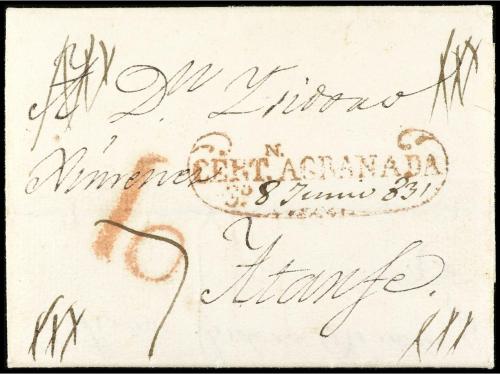 A Dn Ysidoro
Ximenez
N.
CERT. AGRANADA
8 Junio 831
10
Atarfe.